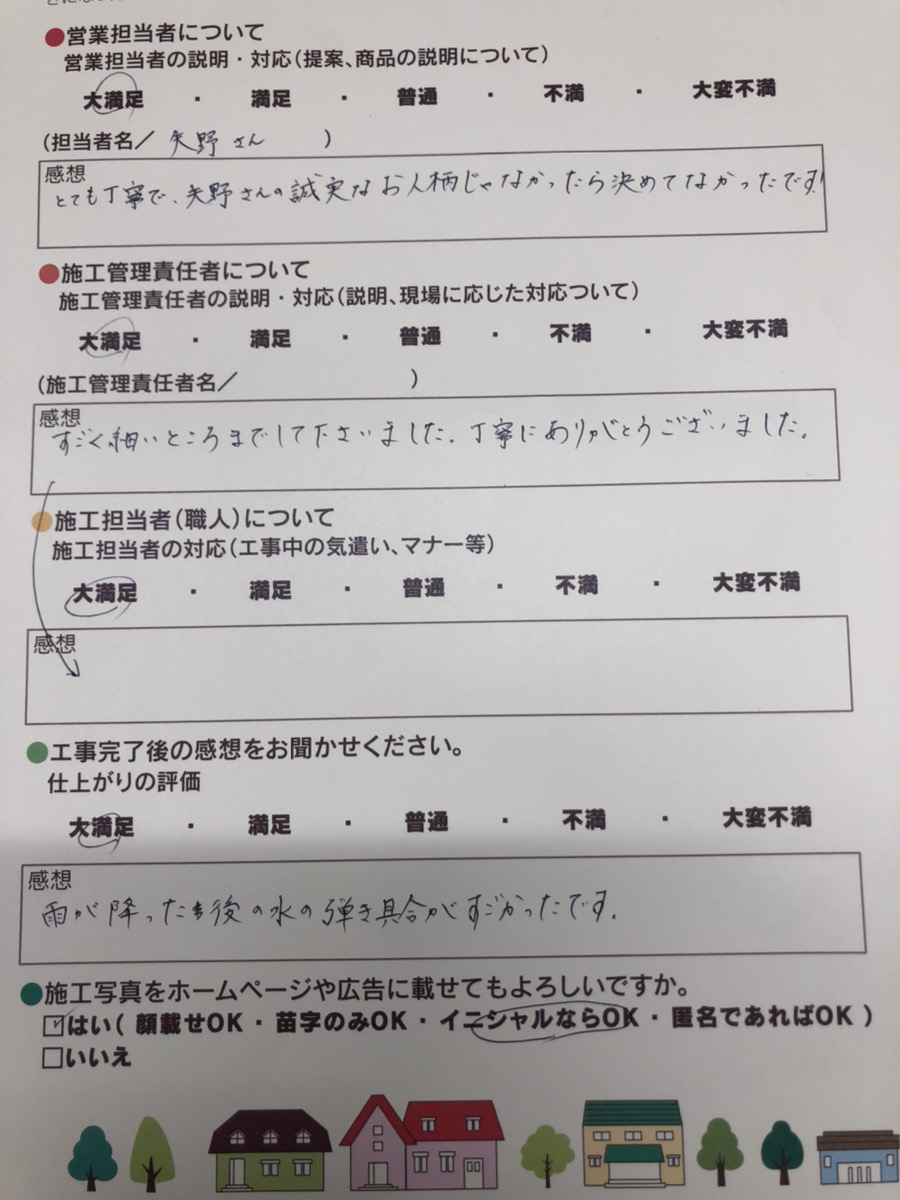 ●営業担当者について
営業担当者の説明・対応(提案、商品の説明について)
大満足 ・ 満足 ・ 普通 ・ 不満 ・ 大変不満
(担当者名／ 矢野さん )
感想
とても丁寧で、矢野さんの誠実なお人柄じゃなかったら決めてなかったです!
●施工管理責任者について
施工管理責任者の説明・対応(説明、現場に応じた対応ついて)
大満足 ・ 満足 ・ 普通 ・ 不満 ・ 大変不満
(施工管理責任者名／ )
感想
すごく細いところまでして下さいました。丁寧にありがとうございました。
●施工担当者(職人)について
施工担当者の対応(工事中の気遣い、マナー等)
大満足 ・ 満足 ・ 普通 ・ 不満 ・ 大変不満
感想
●工事完了後の感想をお聞かせください。
仕上がりの評価
大満足 ・ 満足 ・ 普通 ・ 不満 ・ 大変不満
感想
雨が降った後の水の弾き具合がすごかったです。
●施工写真をホームページや広告に載せてもよろしいですか。
☑はい( 顔載せOK ・ 苗字のみOK ・ イニシャルならOK ・ 匿名であればOK )
□いいえ